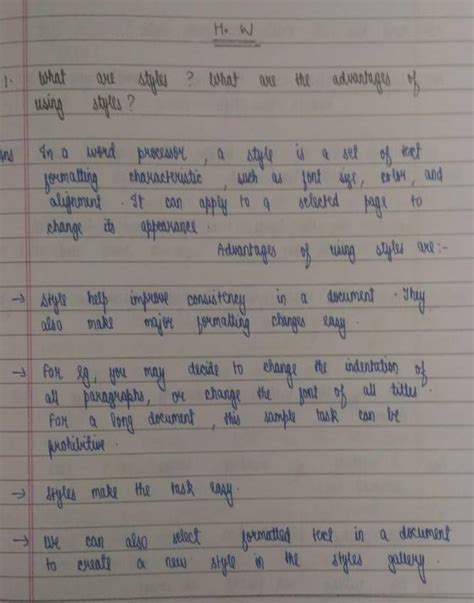 H. W
1. What are styles ? What are the advantages of
using styles ?
Ans In a word processor, a style is a set of text
formatting characteristic, such as font size, color, and
alignment. It can apply to a selected page to
change its appearance.
Advantages of using styles are:-
→ Style help improve consistency in a document. They
also make major formatting changes easy.
→ For Eg, you may decide to change the indentation of
all paragraphs, or change the font of all titles.
For a long document, this sample task can be
prohibitive.
→ Styles make the task easy.
→ We can also select formatted text in a document
to create a new style in the styles gallery.